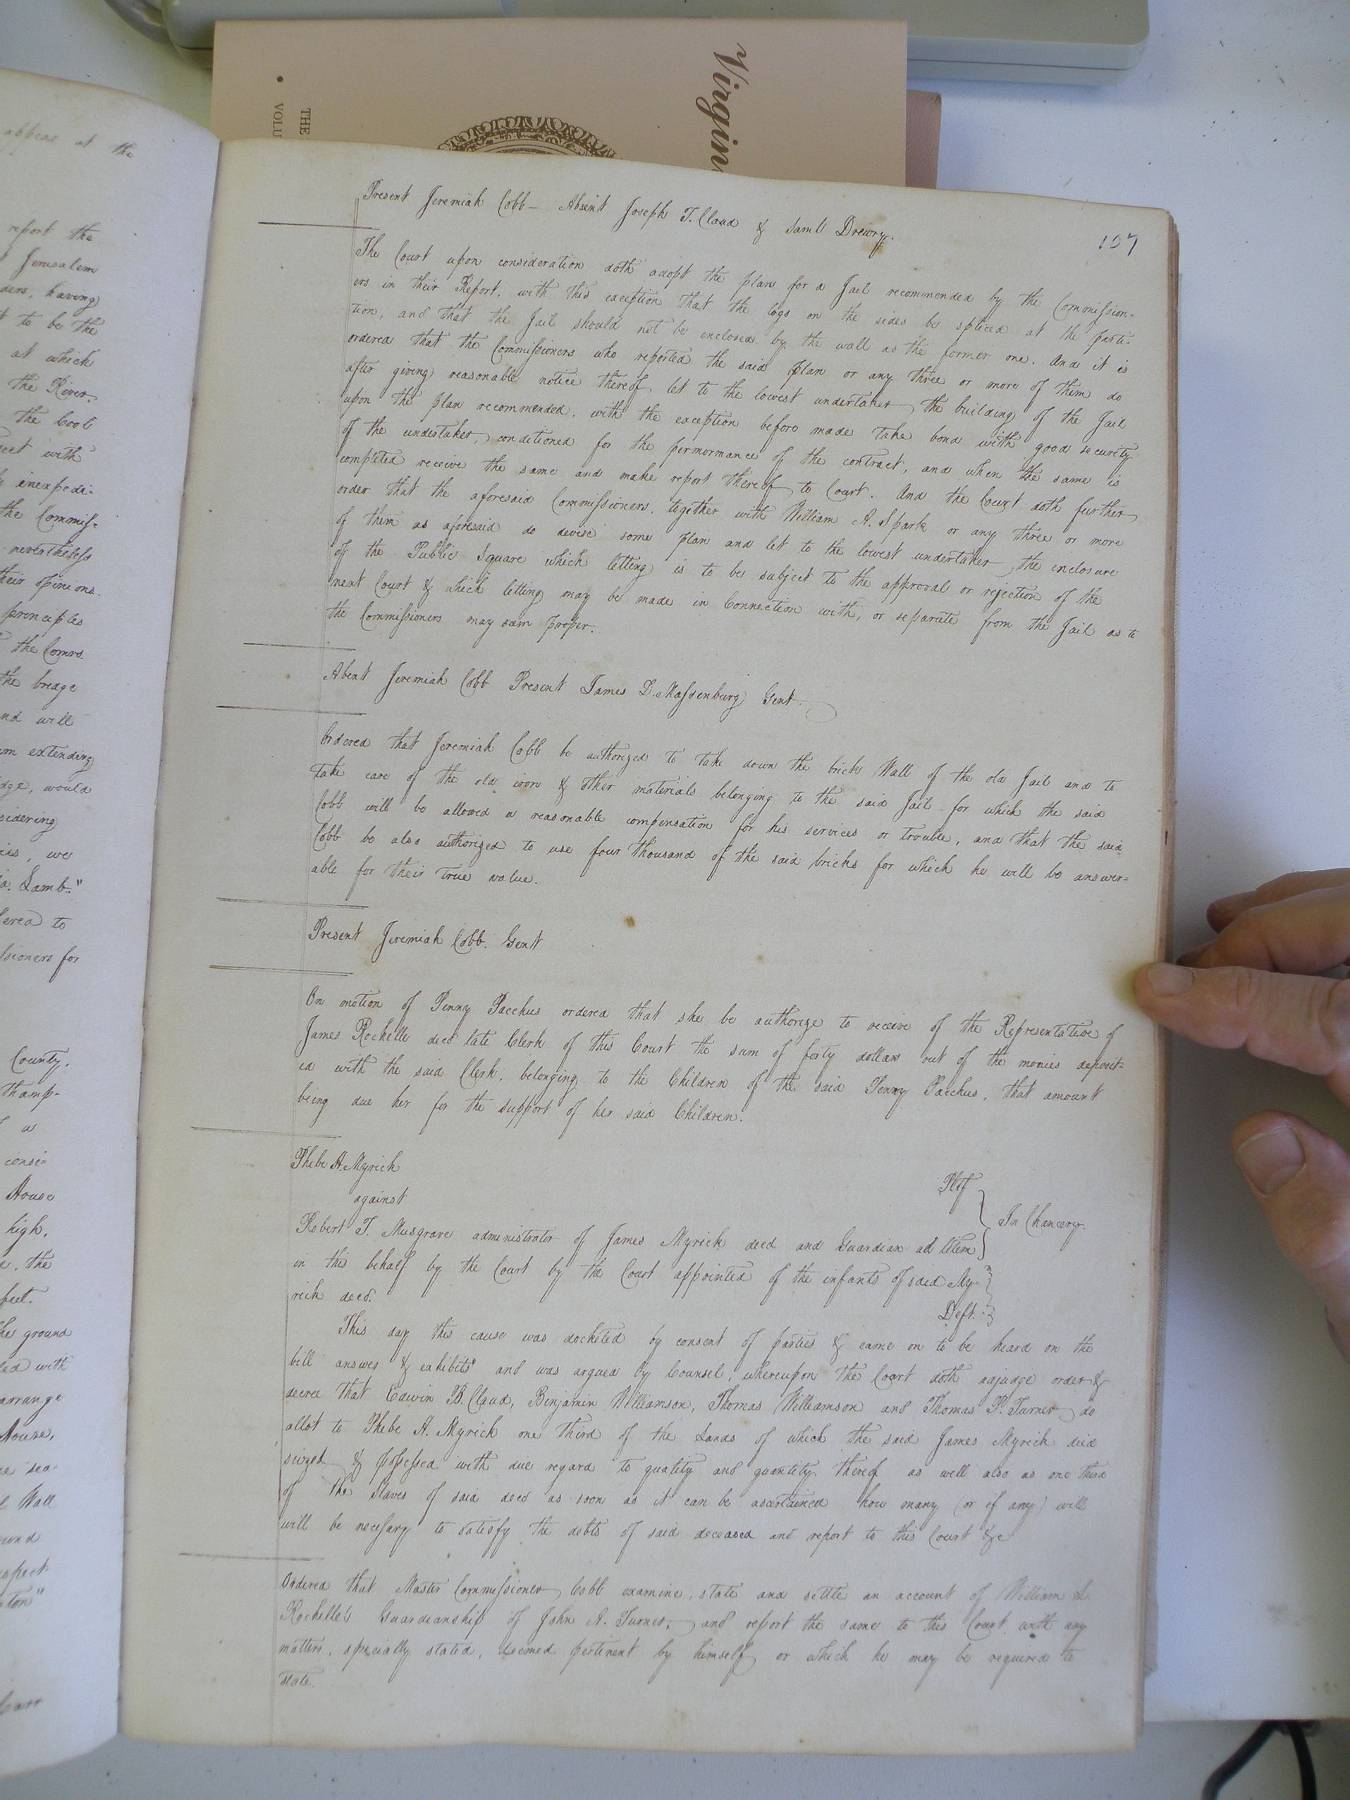 Virgin
THE
VOLU
appear at the
report the
Jerusalem
ders, having
t to be the
at which
the River,
the Cool
eet with
inexpedi-
the Commis-
nevertheless
their opinions.
principles
the Comrs
the breage
nd will
m extending
dge, would
sidering
we
Lamb."
dered to
sioners for
County.
Thamp-
as
consi-
House
high.
the
feet.
the ground
led with
arrange
House,
Wall
ound
espect
ton"
Present Jeremiah Cobb — Absent Joseph T. Claud & Saml. Drewry.
107
The Court upon consideration doth adopt the plan for a Jail recommended by the Commission-
ers in their Report, with this exception that the logs on the sides be spliced at the parti-
tion, and that the Jail should not be enclosed by the wall as the former one. And it is
ordered that the Commissioners who reported the said plan or any three or more of them do
after giving reasonable notice thereof let to the lowest undertaker the building of the Jail
upon the plan recommended, with the exception before made take bond with good security
of the undertaker, conditioned for the permormance of the contract, and when the same is
completed receive the same and make report thereof to Court. And the Court doth further
order that the aforesaid Commissioners, together with William A. Spark or any three or more
of them as aforesaid do devise some plan and let to the lowest undertaker the enclosure
of the Public Square which letting is to be subject to the approval or rejection of the
next Court & which letting may be made in Connection with, or separate from the Jail as to
the Commissioners may seem proper.
Absent Jeremiah Cobb Present James D. Massenburg Gent.
Ordered that Jeremiah Cobb be authorized to take down the brick Wall of the old Jail and to
take care of the old iron & other materials belonging to the said Jail for which the said
Cobb will be allowed a reasonable compensation for his services or trouble, and that the said
Cobb be also authorized to use four thousand of the said bricks for which he will be answer-
able for their true value.
Present Jeremiah Cobb. Gent
On motion of Penny Bacchus ordered that she be authorize to receive of the Representative of
James Rochelle decd late Clerk of this Court the sum of forty dollars out of the monies deposit-
ed with the said Clerk, belonging to the Children of the said Penny Bacchus, that amount
being due her for the support of her said Children.
Phebe A. Myrick Pltf
against In Chancery.
Robert T. Musgrave administrator of James Myrick decd and Guardian ad litem
in the behalf by the Court by the Court appointed of the infants of said My-
rick decd. Deft.
This day this cause was docketed by consent of parties & came on to be heard on the
bill answer & exhibits and was argued by Counsel, whereupon the Court doth adjudge order &
decree that Edwin B. Claud, Benjamin Williamson, Thomas Williamson and Thomas P. Turner do
allot to Phebe A. Myrick one third of the Lands of which the said James Myrick died
seized & possessed with due regard to quality and quantity thereof as well also as one third
of the Slaves of said decd as soon as it can be ascertained how many (or if any) will
be necessary to satisfy the debts of said deceased and report to this Court &c
Ordered that Master Commissioner Cobb examine, state and settle an account of William L.
Rochelle's Guardianship of John A. Turner, and report the same to this Court with any
matters, specially stated, deemed pertinent by himself or which he may be required to
state.